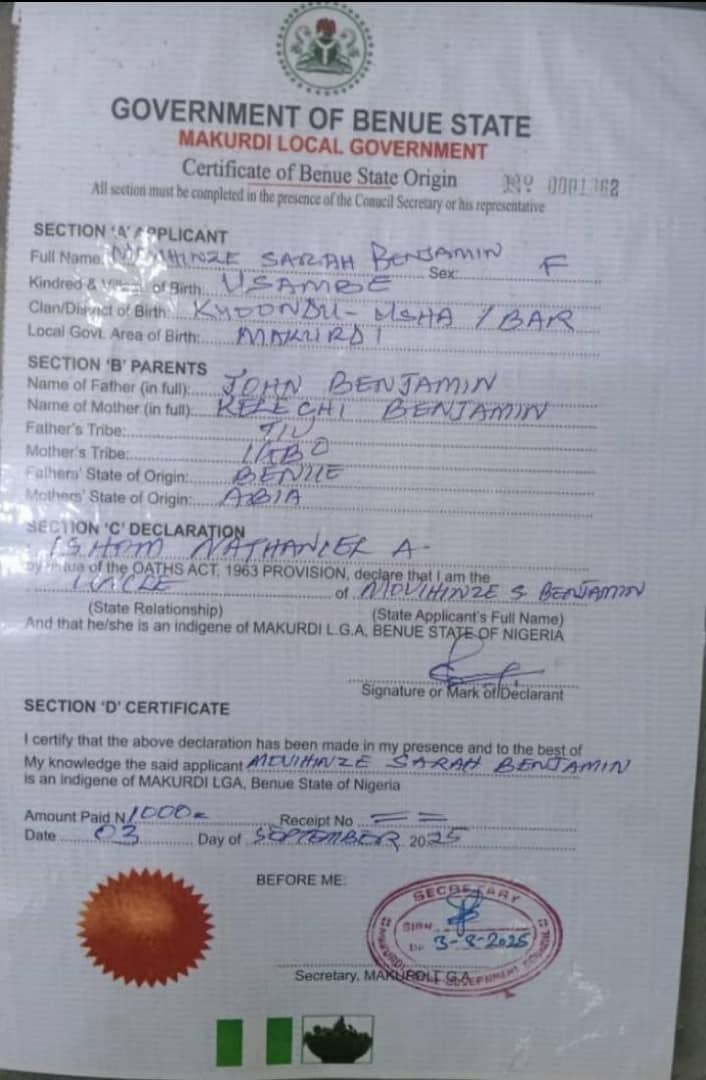 GOVERNMENT OF BENUE STATE
MAKURDI LOCAL GOVERNMENT
Certificate of Benue State Origin
All section must be completed in the presence of the Conucil Secretary or his representative
SECTION 'A' APPLICANT
Full Name: SARAH BENJAMIN Sex: F
Kindred & of Birth: USAMBE
Clan/District of Birth: / BAR
Local Govt. Area of Birth: MAKURDI
SECTION 'B' PARENTS
Name of Father (in full): JOHN BENJAMIN
Name of Mother (in full): KELECHI BENJAMIN
Father's Tribe: TIV
Mother's Tribe:
Fathers' State of Origin: BENUE
Mothers' State of Origin: ABIA
SECTION 'C' DECLARATION
NATHANIEL A-
of the OATHS ACT, 1963 PROVISION, declare that I am the
of S BENJAMIN
(State Relationship) (State Applicant's Full Name)
And that he/she is an indigene of MAKURDI L.G.A, BENUE STATE OF NIGERIA
Signature or Mark of Declarant
SECTION 'D' CERTIFICATE
I certify that the above declaration has been made in my presence and to the best of
My knowledge the said applicant SARAH BENJAMIN
is an indigene of MAKURDI LGA, Benue State of Nigeria
Amount Paid N 1000= Receipt No = =
Date 03 Day of SEPTEMBER 2025
BEFORE ME:
SECRETARY
SIGN
3-8-2025
Secretary, MAKURDI L.G.A.